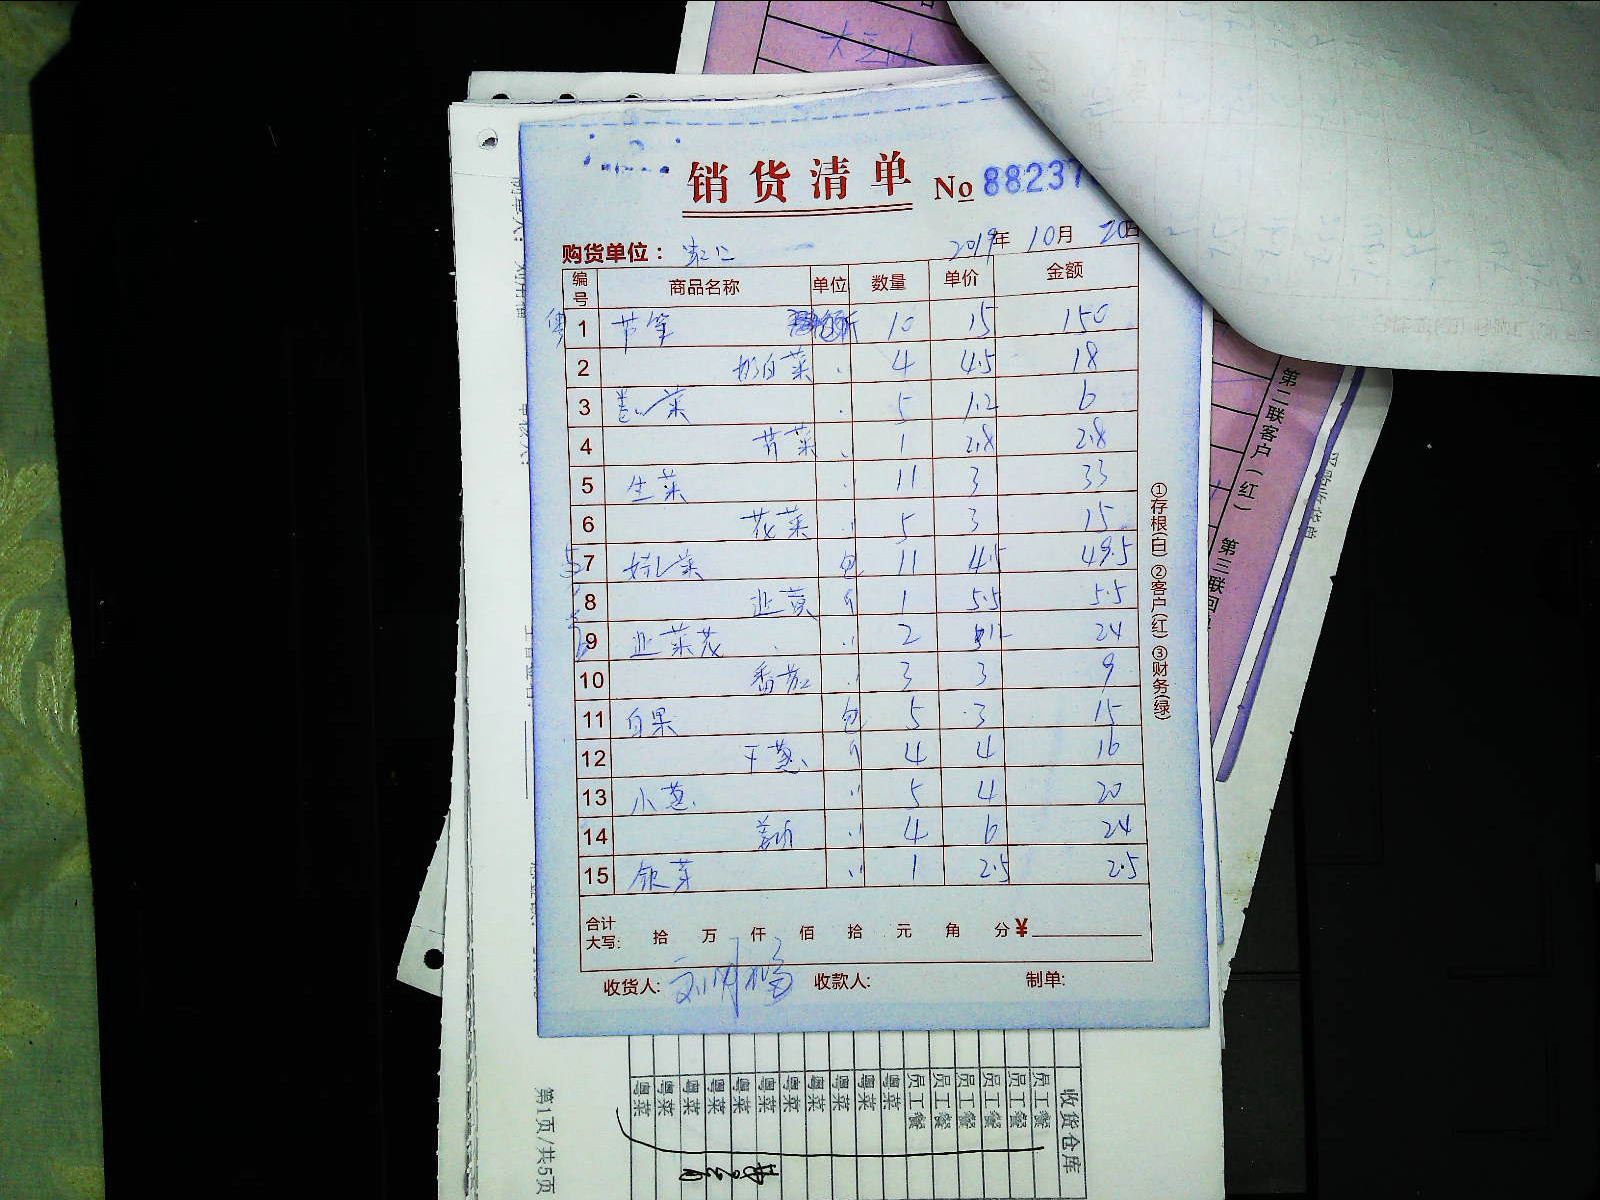 销货清单 No 88237
购货单位： 2019年 10月 20日
编号 商品名称 单位 数量 单价 金额
1 芦笋 斤 10 15 150
2 奶白菜 4 4.5 18
3 菜 5 1.2 6
4 芹菜 1 2.8 2.8
5 生菜 11 3 33
6 花菜 5 3 15
7 菜 包 11 4.5 49.5
8 韭黄 斤 1 5.5 5.5
9 韭菜花 2 12 24
10 番茄 3 3 9
11 白果 包 5 3 15
12 干葱 斤 4 4 16
13 小葱 5 4 20
14 4 6 24
15 银芽 1 2.5 2.5
合计大写： 拾 万 仟 佰 拾 元 角 分 ¥
收货人: 收款人: 制单:
①存根(白) ②客户(红) ③财务(绿)
第二联客户（红） 第三联回
收货仓库
员工餐
员工餐
员工餐
员工餐
员工餐
员工餐
粤菜
粤菜
粤菜
粤菜
粤菜
粤菜
粤菜
粤菜
粤菜
粤菜
粤菜
第1页/共5页